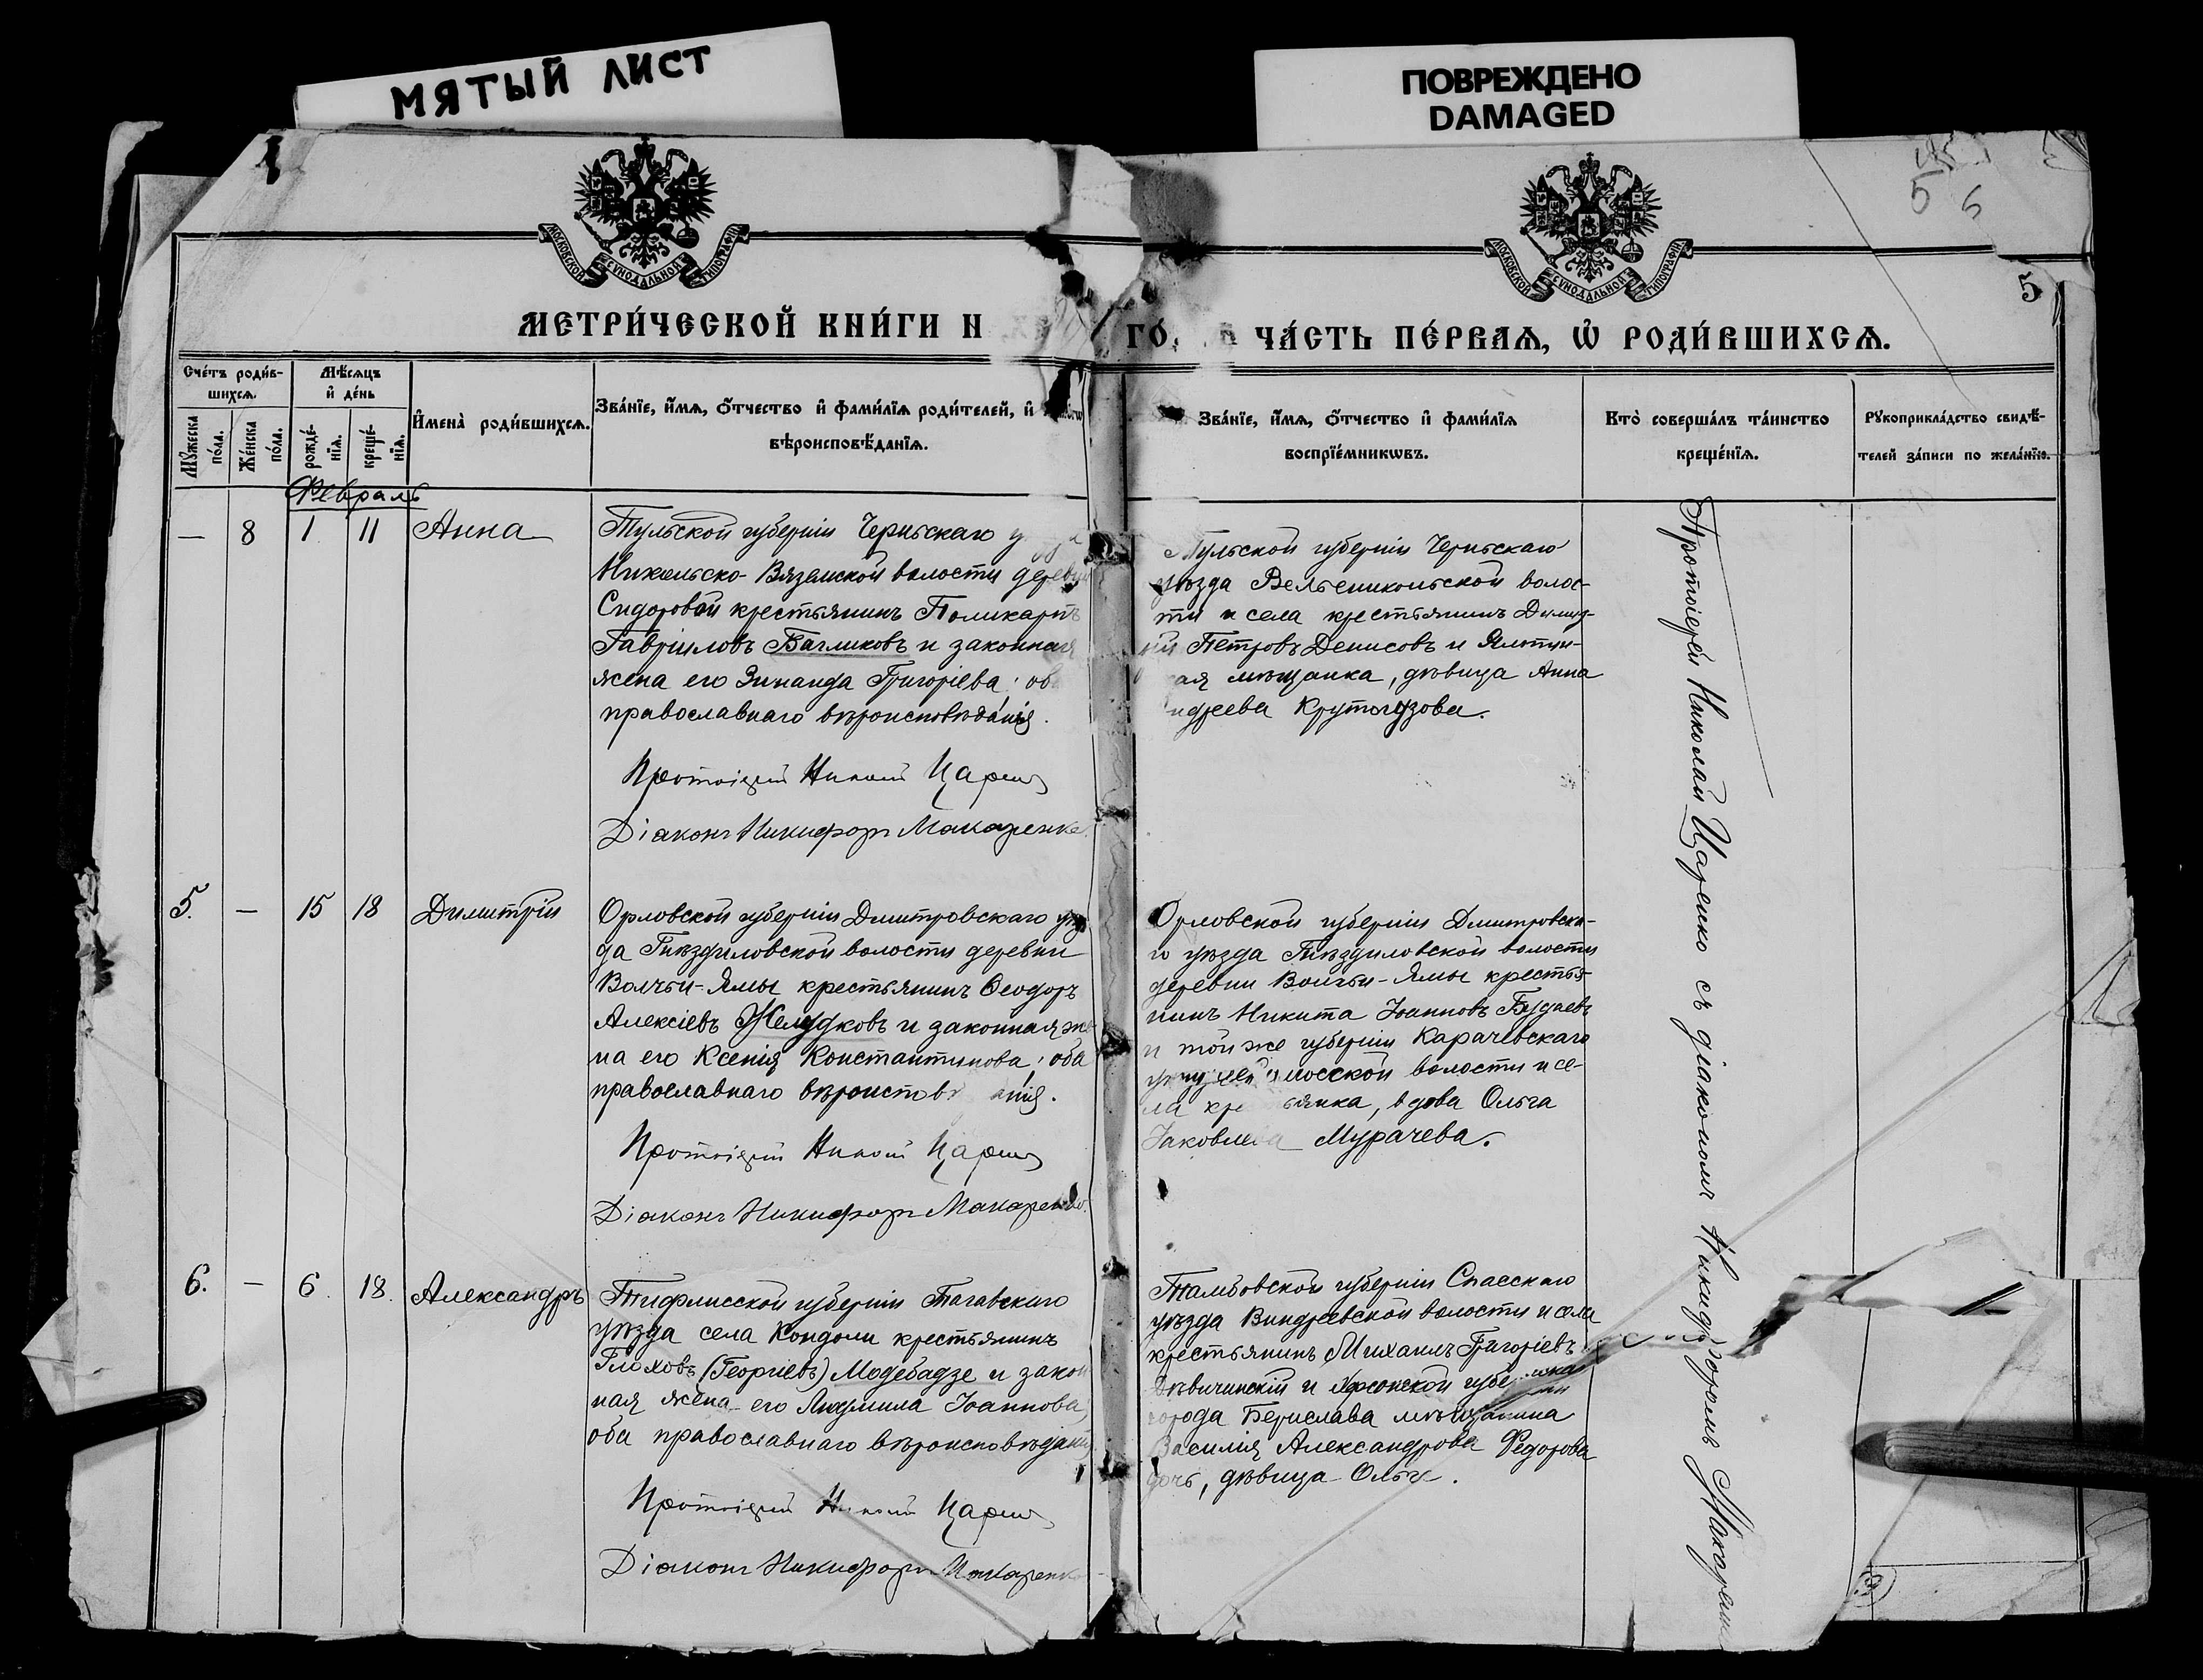 МЯТЫЙ ЛИСТ
ПОВРЕЖДЕНО
DAMAGED
МОСКОВСКОЙ СѴНОДАЛЬНОЙ ТИПОГРАФІИ
МОСКОВСКОЙ СѴНОДАЛЬНОЙ ТИПОГРАФІИ
5 6
5
МЕТРИ́ЧЕСКОЙ КНИ́ГИ Н
ГО́ ЧА́СТЬ ПЕ́РВАѦ, Ѡ҆ РОДИ́ВШИХСѦ.
Сче́тъ роди́в-
шихсѧ.
Мꙋжеска
по́ла.
Же́нска
по́ла.
Мѣ́сѧцъ
и҆ де́нь
рожде́-
нїѧ.
креще́-
нїѧ.
И҆мена̀ роди́вшихсѧ.
Зва́нїе, и҆́мѧ, ѻ҆́тчество и҆ фами́лїѧ роди́телей, и҆
вѣроисповѣ́данїѧ.
Зва́нїе, и҆́мѧ, ѻ҆́тчество и҆ фами́лїѧ
воспрїе́мникѡвъ.
Кто̀ соверша́лъ та́инство
креще́нїѧ.
Рꙋкоприкла́дство свидѣ́-
телей за́писи по жела́нїю.
Февраль
— 8 1 11 Анна
Тульской губерніи Чернскаго
Никольско-Вяземской волости деревни
Сидоровой крестьянинъ Поликарпъ
Гавріиловъ Багликовъ и законная
жена его Зинаида Григоріева; оба
православнаго вѣроисповѣданія.
Протоіерей Николай Царенко
Діаконъ Никифоръ Макаренко
Тульской губерніи Чернскаго
уѣзда Вельеникольской волос-
ти и села крестьянинъ Димит-
рій Петровъ Денисовъ и Ялтин-
ская мѣщанка, дѣвица Анна
ндреева Крутогузова.
5. — 15 18 Димитрій
Орловской губерніи Дмитровскаго уѣз
да Гнѣздиловской волости деревни
Волчьи-Ямы крестьянинъ Ѳеодоръ
Алексіевъ Желудковъ и законная же-
на его Ксенія Константинова; оба
православнаго вѣроисповѣданія.
Протоіерей Николай Царенко
Діаконъ Никифоръ Макаренко.
Орловской губерніи Дмитровска-
го уѣзда Гнѣздиловской волости
деревни Волчьи-Ямы крестья-
нинъ Никита Іоанновъ Будаевъ
и той же губерніи Карачевскаго
волости и се-
ла крестьянка, вдова Ольга
Іаковлева Мурачева.
6. — 6. 18. Александръ
Тифлисской губерніи Телавскаго
уѣзда села Кондоли крестьянинъ
Глаховъ (Георгіевъ) Модебадзе и закон
ная жена его Людмила Іоаннова,
оба православнаго вѣроисповѣданія
Протоіерей Николай Царенко
Діаконъ Никифоръ Макаренко
Тамбовской губерніи Спасскаго
уѣзда Виндреевской волости и села
крестьянинъ Михаилъ Григоріевъ
Дѣвичинскій и Херсонской губерніи
города Берислава мѣщанина
Василія Александрова Федорова
дочь, дѣвица Ольга.
Протоіерей Николай Царенко съ діакономъ Никифоромъ Макаренко